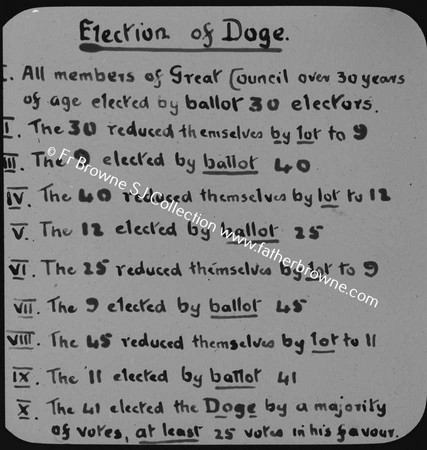 Election of Doge.
I. All members of Great Council over 30 years
of age elected by ballot 30 electors.
II. The 30 reduced themselves by lot to 9
III. The 9 elected by ballot 40
IV. The 40 reduced themselves by lot to 12
V. The 12 elected by ballot 25
VI. The 25 reduced themselves by lot to 9
VII. The 9 elected by ballot 45
VIII. The 45 reduced themselves by lot to 11
IX. The 11 elected by ballot 41
X. The 41 elected the Doge by a majority
of votes, at least 25 votes in his favour.
© Fr Browne S.J. Collection www.fatherbrowne.com